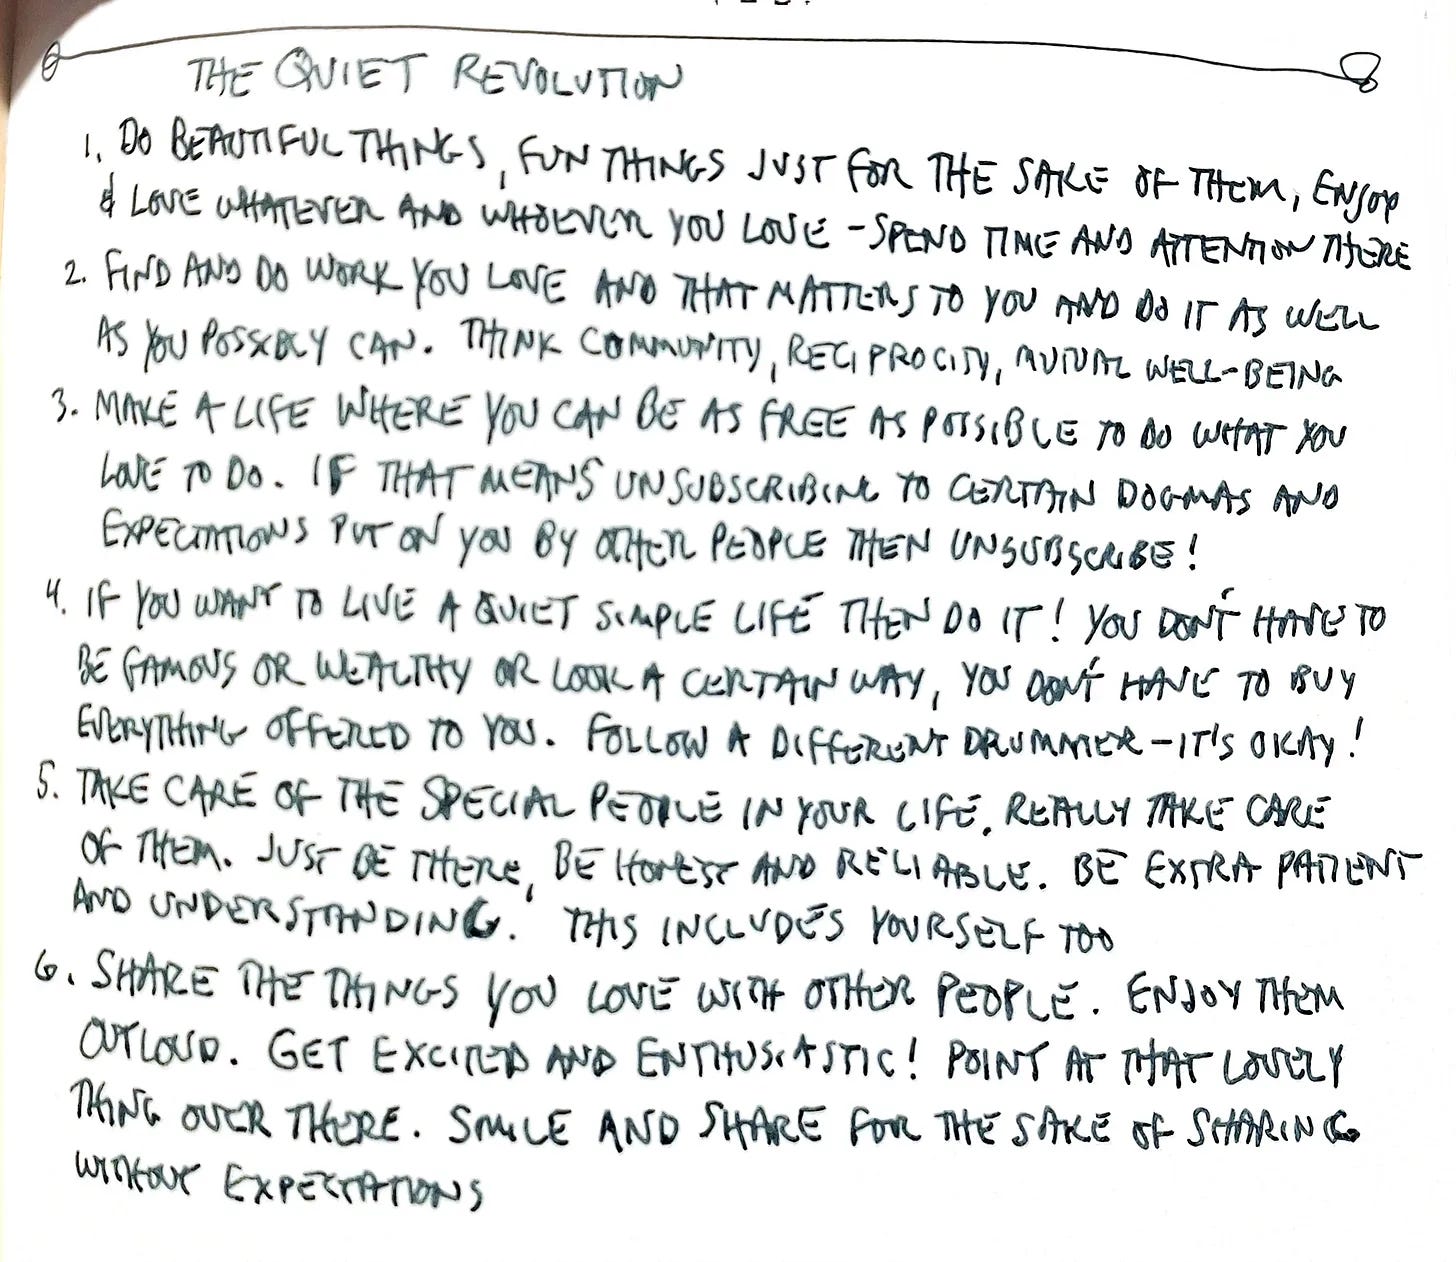 THE QUIET REVOLUTION
1. DO BEAUTIFUL THINGS, FUN THINGS JUST FOR THE SAKE OF THEM, ENJOY
& LOVE WHATEVER AND WHOEVER YOU LOVE - SPEND TIME AND ATTENTION THERE
2. FIND AND DO WORK YOU LOVE AND THAT MATTERS TO YOU AND DO IT AS WELL
AS YOU POSSIBLY CAN. THINK COMMUNITY, RECIPROCITY, MUTUAL WELL-BEING
3. MAKE A LIFE WHERE YOU CAN BE AS FREE AS POSSIBLE TO DO WHAT YOU
LOVE TO DO. IF THAT MEANS UNSUBSCRIBING TO CERTAIN DOGMAS AND
EXPECTATIONS PUT ON YOU BY OTHER PEOPLE THEN UNSUBSCRIBE!
4. IF YOU WANT TO LIVE A QUIET SIMPLE LIFE THEN DO IT! YOU DON'T HAVE TO
BE FAMOUS OR WEALTHY OR LOOK A CERTAIN WAY, YOU DON'T HAVE TO BUY
EVERYTHING OFFERED TO YOU. FOLLOW A DIFFERENT DRUMMER - IT'S OKAY!
5. TAKE CARE OF THE SPECIAL PEOPLE IN YOUR LIFE. REALLY TAKE CARE
OF THEM. JUST BE THERE, BE HONEST AND RELIABLE. BE EXTRA PATIENT
AND UNDERSTANDING. THIS INCLUDES YOURSELF TOO
6. SHARE THE THINGS YOU LOVE WITH OTHER PEOPLE. ENJOY THEM
OUTLOUD. GET EXCITED AND ENTHUSIASTIC! POINT AT THAT LOVELY
THING OVER THERE. SMILE AND SHARE FOR THE SAKE OF SHARING
WITHOUT EXPECTATIONS